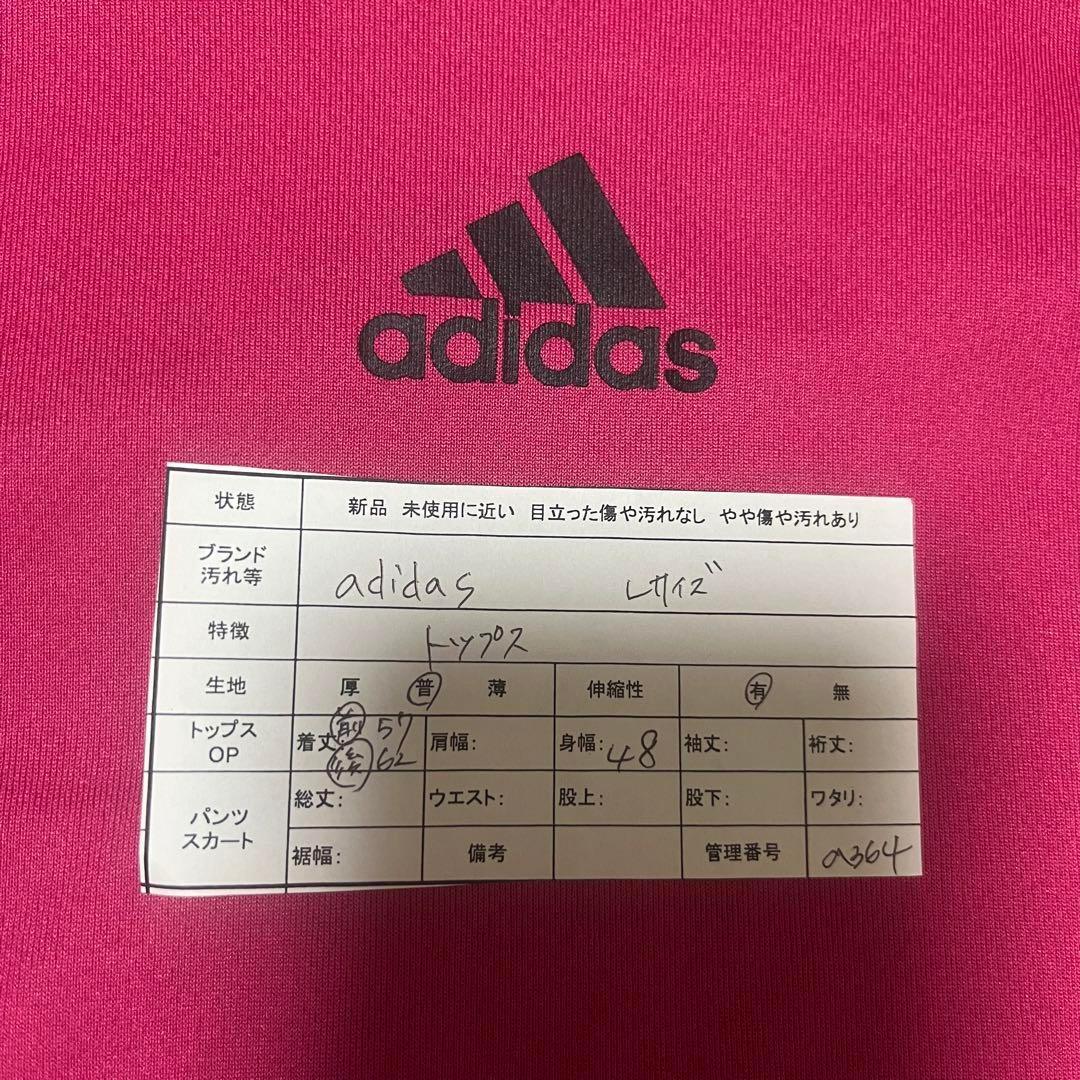 adidas
状態 新品 未使用に近い 目立った傷や汚れなし やや傷や汚れあり
ブランド
汚れ等 adidas Lサイズ
特徴 トップス
生地 厚 普 薄 伸縮性 有 無
トップス
OP 着丈: 前 57 肩幅: 身幅: 48 袖丈: 裄丈:
後 62
パンツ
スカート 総丈: ウエスト: 股上: 股下: ワタリ:
裾幅: 備考 管理番号 a364